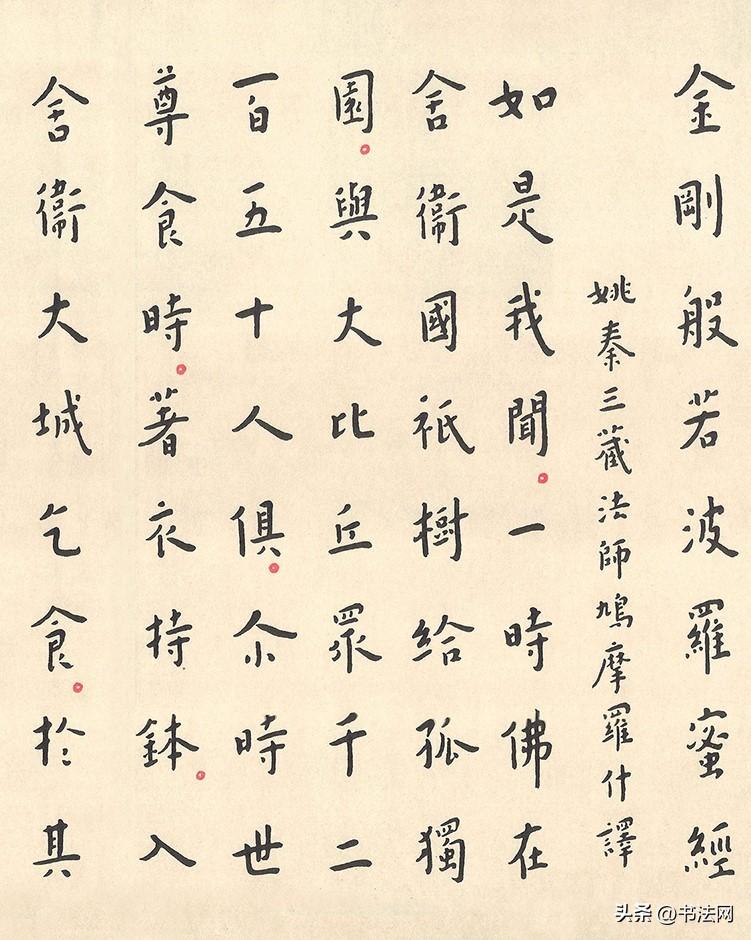 金剛般若波羅蜜經
姚秦三藏法師鳩摩羅什譯
如是我聞。一時佛在
舍衛國祇樹給孤獨
園。與大比丘眾千二
百五十人俱。尒時世
尊食時。著衣持鉢。入
舍衛大城乞食。於其
头条 @书法网